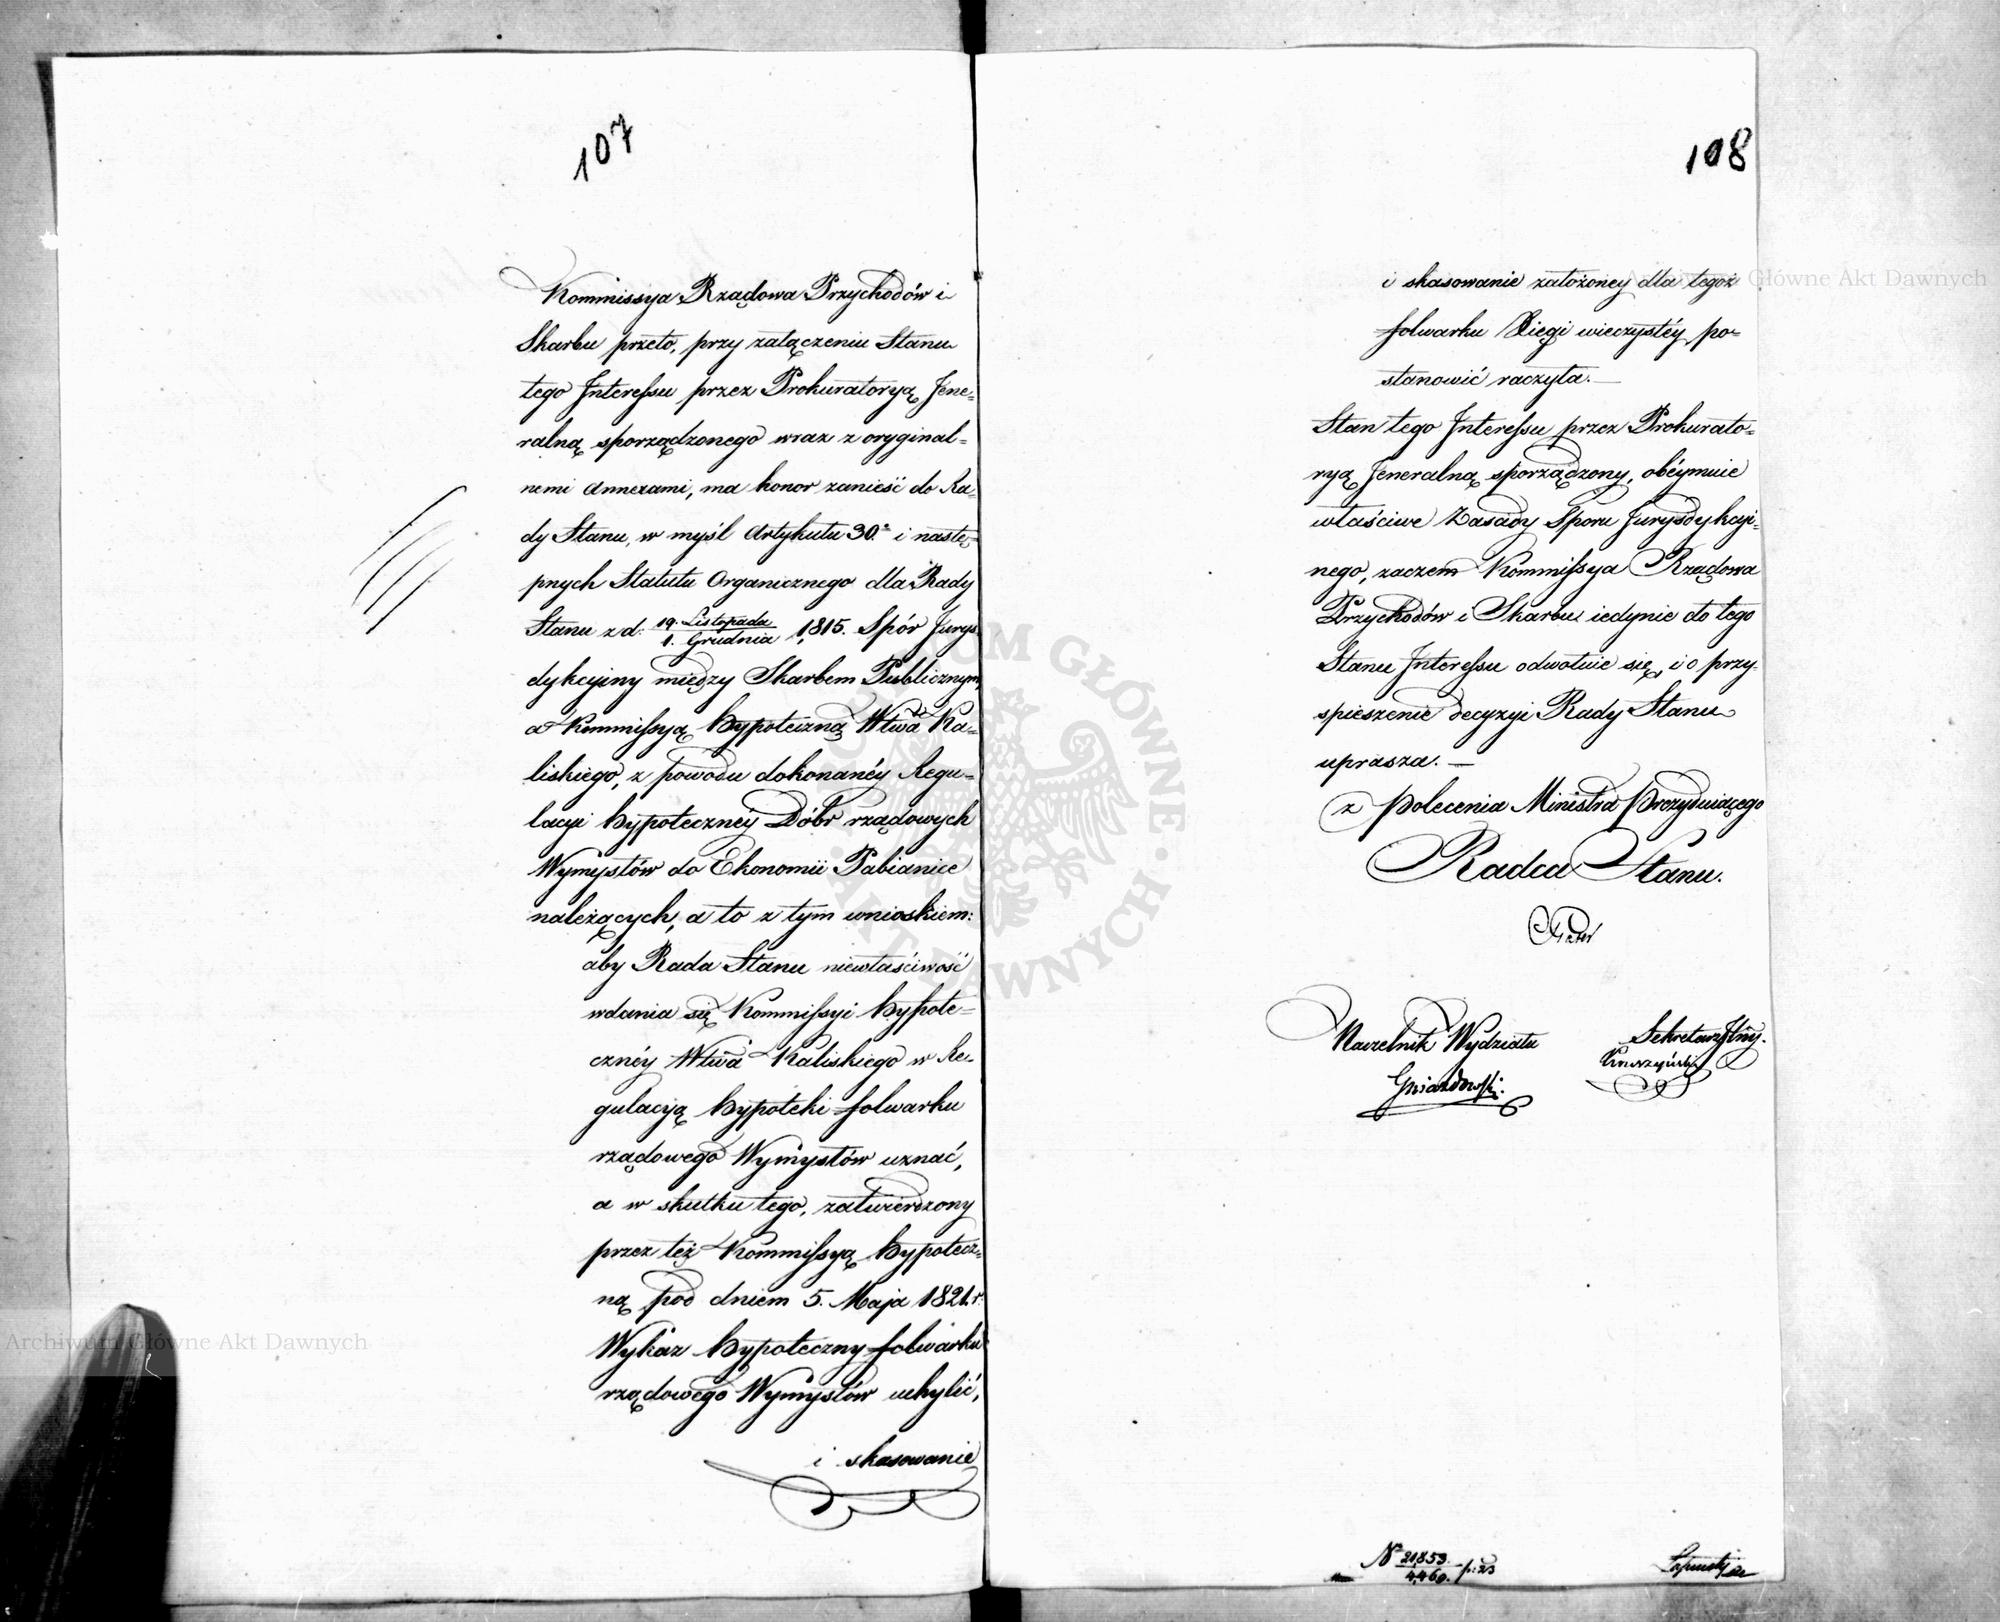 107
Kommissya Rządowa Przychodów i
Skarbu przeto, przy załączeniu Stanu
tego Interessu przez Prokuratoryą Jene-
ralną sporządzonego wraz z oryginal-
nemi Annexami, ma honor zanieść do Ra-
dy Stanu, w myśl Artykułu 30.º i nastę-
pnych Statutu Organicznego dla Rady
Stanu z d: 19. Listopada / 1. Grudnia 1815. Spór Jurys-
dykcyiny między Skarbem Publicznym,
a Kommissyą Hypoteczną Wtwa Ka-
liskiego, z powodu dokonanéy Regu-
lacyi hypoteczney Dóbr rządowych
Wymysłów do Ekonomii Pabianice
należących, a to z tym wnioskiem:
aby Rada Stanu niewłaściwość
wdania się Kommissyi Hypote-
cznéy Wtwa Kaliskiego w Re-
gulacyą hypoteki folwarku
rządowego Wymysłów uznać,
a w skutku tego, zatwierdzony
przez też Kommissyą Hypotecz-
ną pod dniem 5. Maja 1821. r.
Wykaz hypoteczny folwarku
rządowego Wymysłów uchylić,
i skasowanie
108
i skasowanie założoney dla tegoż
folwarku Xięgi wieczystéy, po-
stanowić raczyła. —
Stan tego Interessu przez Prokurato-
ryą Jeneralną sporządzony, obéymuie
właściwe Zasady Sporu Jurysdykcyi-
nego, zaczem Kommissya Rządowa
Przychodów i Skarbu iedynie do tego
Stanu Interessu odwołuie się, i o przy-
spieszenie decyzyi Rady Stanu
uprasza. —
z Polecenia Ministra Prezyduiącego
Radca Stanu.
Naczelnik Wydziału
Gniazdowski.
Sekretarz Jlny.
Kruszyński
Nº 21,853. / 4,460.
Archiwum Główne Akt Dawnych
Archiwum Główne Akt Dawnych
ARCHIWUM GŁÓWNE AKT DAWNYCH